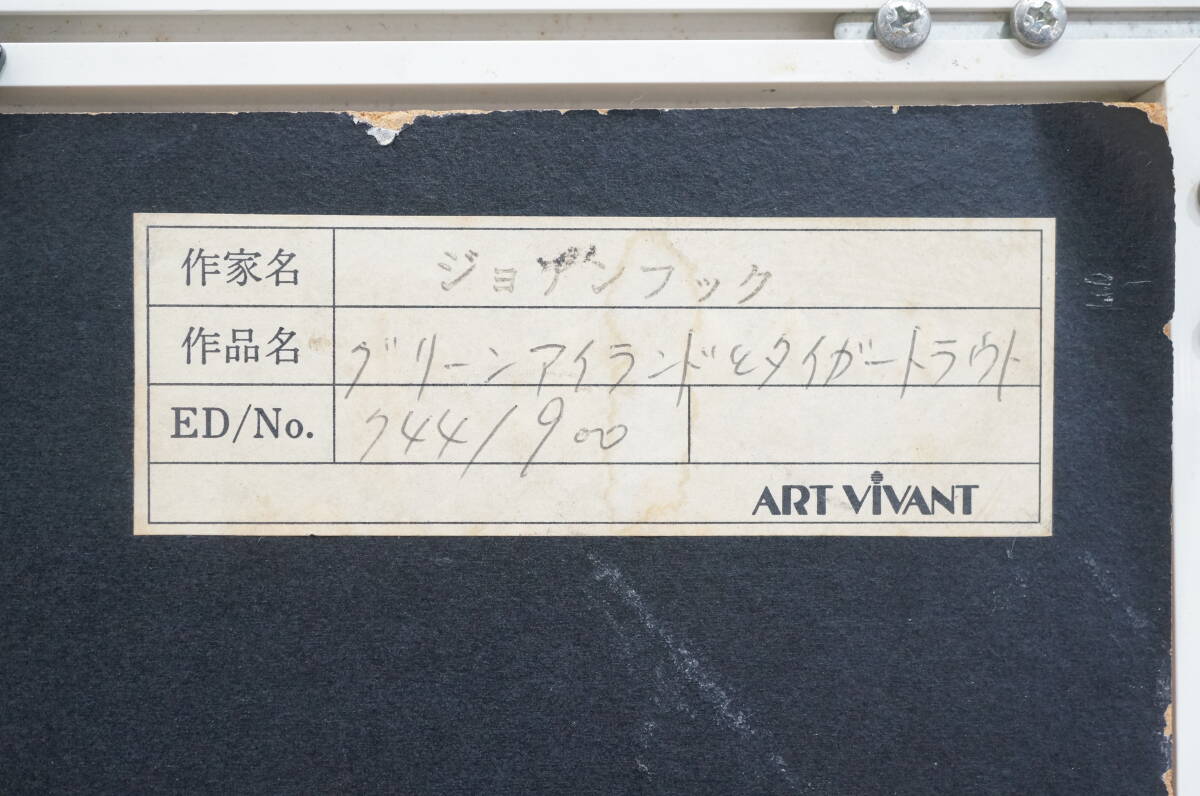 作家名 ジョアンフック
作品名 グリーンアイランドとタイガートラウト
ED/No. 744/900
ART ViVANT